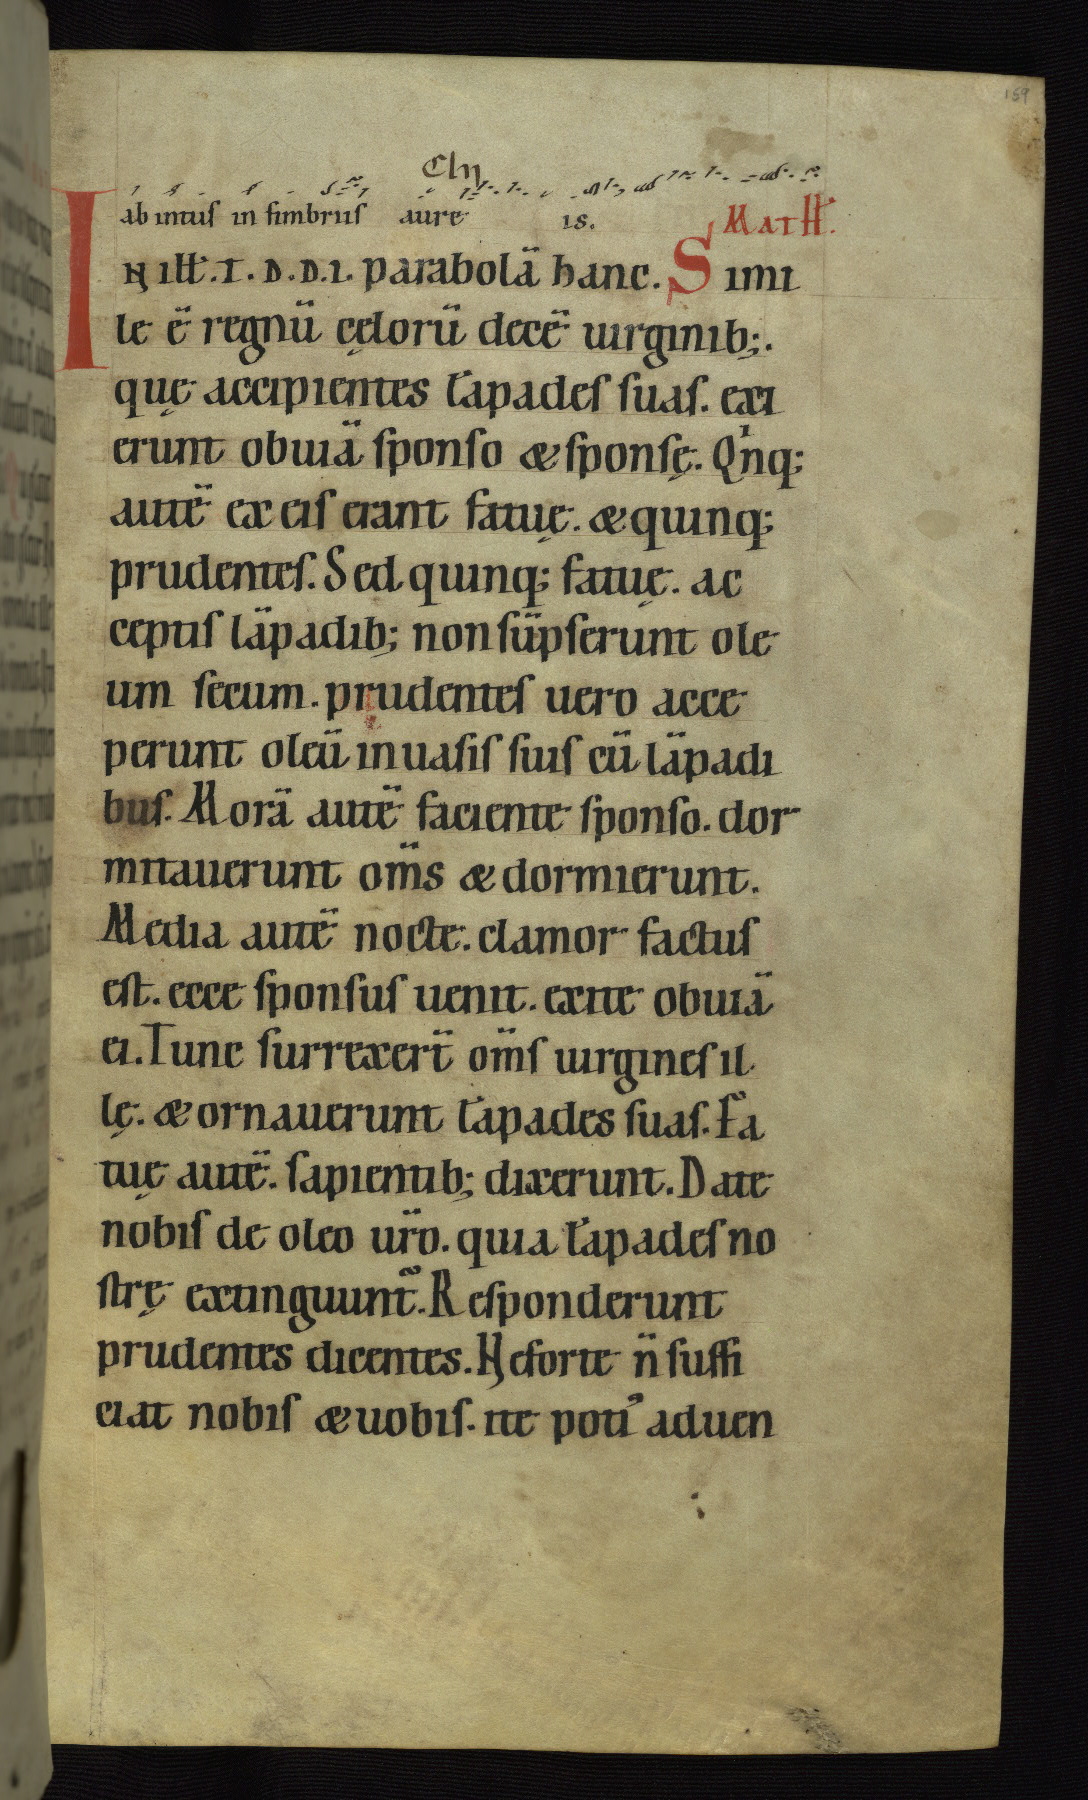 159
Chͫ
ab intus in fimbriis aure is.
Matħ.
IN iłł. T. D. D. I. parabolā hanc. Simi
le ē regnū cęlorū decē uirginib;.
quę accipientes lāpades suas. exi
erunt obuiā sponso & sponsę. Qⁱnq;
autē ex eis erant fatuę. & quinq;
prudentes. Sed quinq; fatuę. ac
ceptis lāpadib; non sūpserunt ole
um secum. prudentes uero acce
perunt oleū in uasis suis cū lāpadi
bus. Morā autē faciente sponso. dor
mitauerunt om̄s & dormierunt.
Media autē nocte. clamor factus
est. ecce sponsus uenit. exite obuiā
ei. Tunc surrexer̄t om̄s uirgines il
lę. & ornauerunt lāpades suas. Fa
tuę autē. sapientib; dixerunt. Date
nobis de oleo ur̄o. quia lāpades no
strę extinguunt᷑. Responderunt
prudentes dicentes. Ne forte n̄ suffi
ciat nobis & uobis. ite potiꝰ ad uen